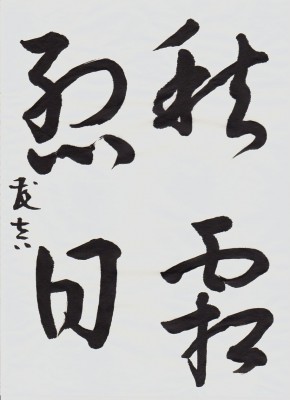 秋霜
烈日